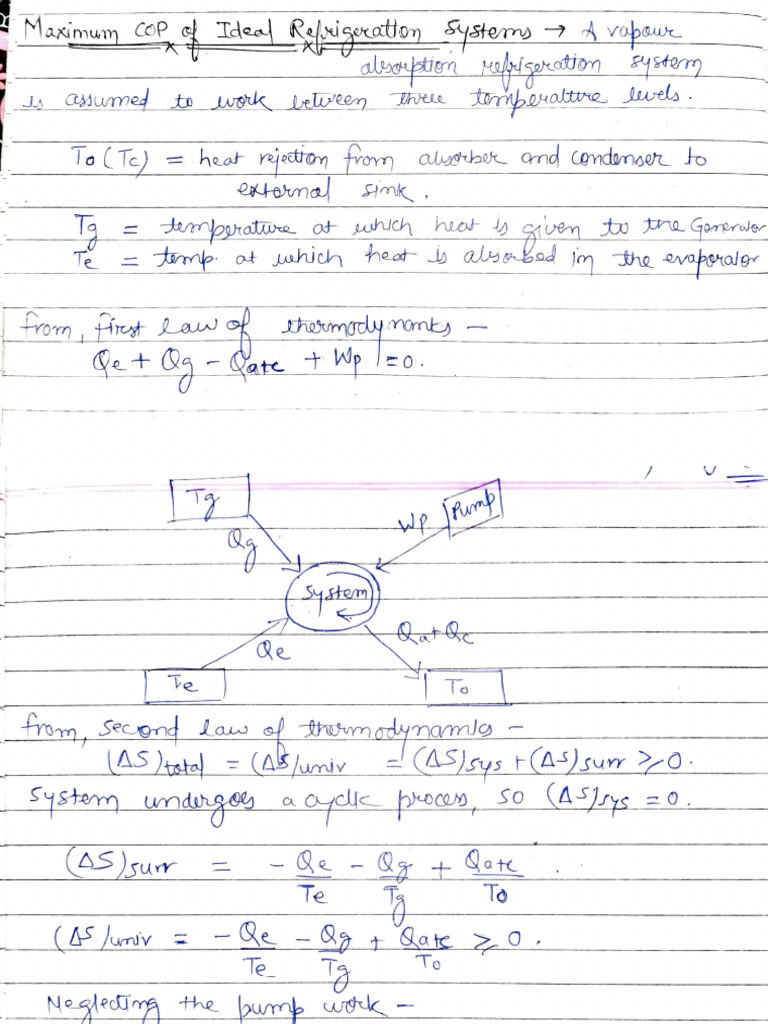 Maximum COP of Ideal Refrigeration systems → A vapour
absorption refrigeration system
is assumed to work between three temperature levels.
To (Tc) = heat rejection from absorber and condenser to
external sink.
Tg = temperature at which heat is given to the Generator
Te = temp. at which heat is absorbed in the evaporator
from, first law of thermodynamics –
Qe + Qg – Qa+c + Wp = 0.
Tg
Wp
Pump
Qg
System
Qe
Qa+Qc
Te
To
from, second law of thermodynamics –
(ΔS)total = (ΔS)univ = (ΔS)sys + (ΔS)surr ≥ 0.
System undergoes a cyclic process, so (ΔS)sys = 0.
(ΔS)surr = - Qe/Te - Qg/Tg + Qa+c/To .
(ΔS)univ = - Qe/Te - Qg/Tg + Qa+c/To ≥ 0.
Neglecting the pump work –